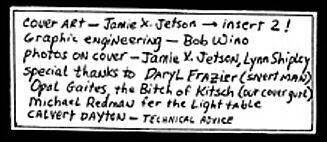 COVER ART — Jamie X. Jetson → insert 2!
Graphic engineering — Bob Wino
photos on cover — Jamie X. Jetson, Lynn Shipley
special thanks to DARYL FRAZIER (SNERT MAN)
Opal Gaites, the Bitch of Kitsch (our cover gurl)
Michael Redman fer the Light table
CALVERT DAYTON — TECHNICAL ADVICE